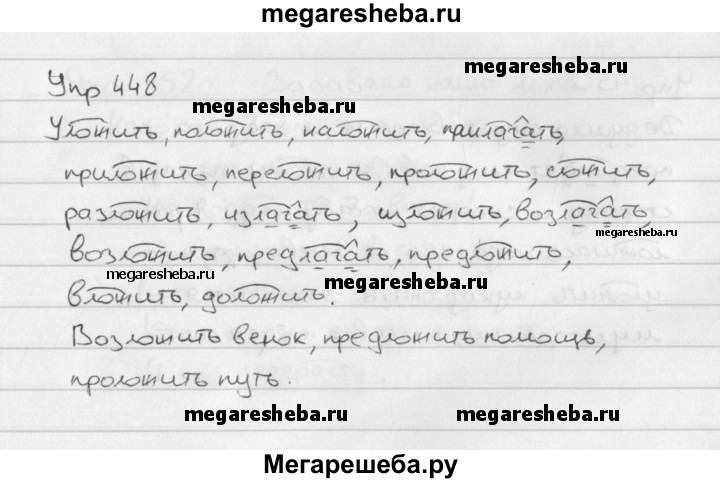 megaresheba.ru
megaresheba.ru
Упр 448
megaresheba.ru
Уложить, положить, наложить, прилагать,
megaresheba.ru
приложить, переложить, проложить, сложить,
разложить, излагать, изложить, возлагать,
megaresheba.ru
возложить, предлагать, предложить,
megaresheba.ru
megaresheba.ru
вложить, доложить.
Возложить венок, предложить помощь,
проложить путь.
megaresheba.ru
megaresheba.ru
Мегарешеба.ру